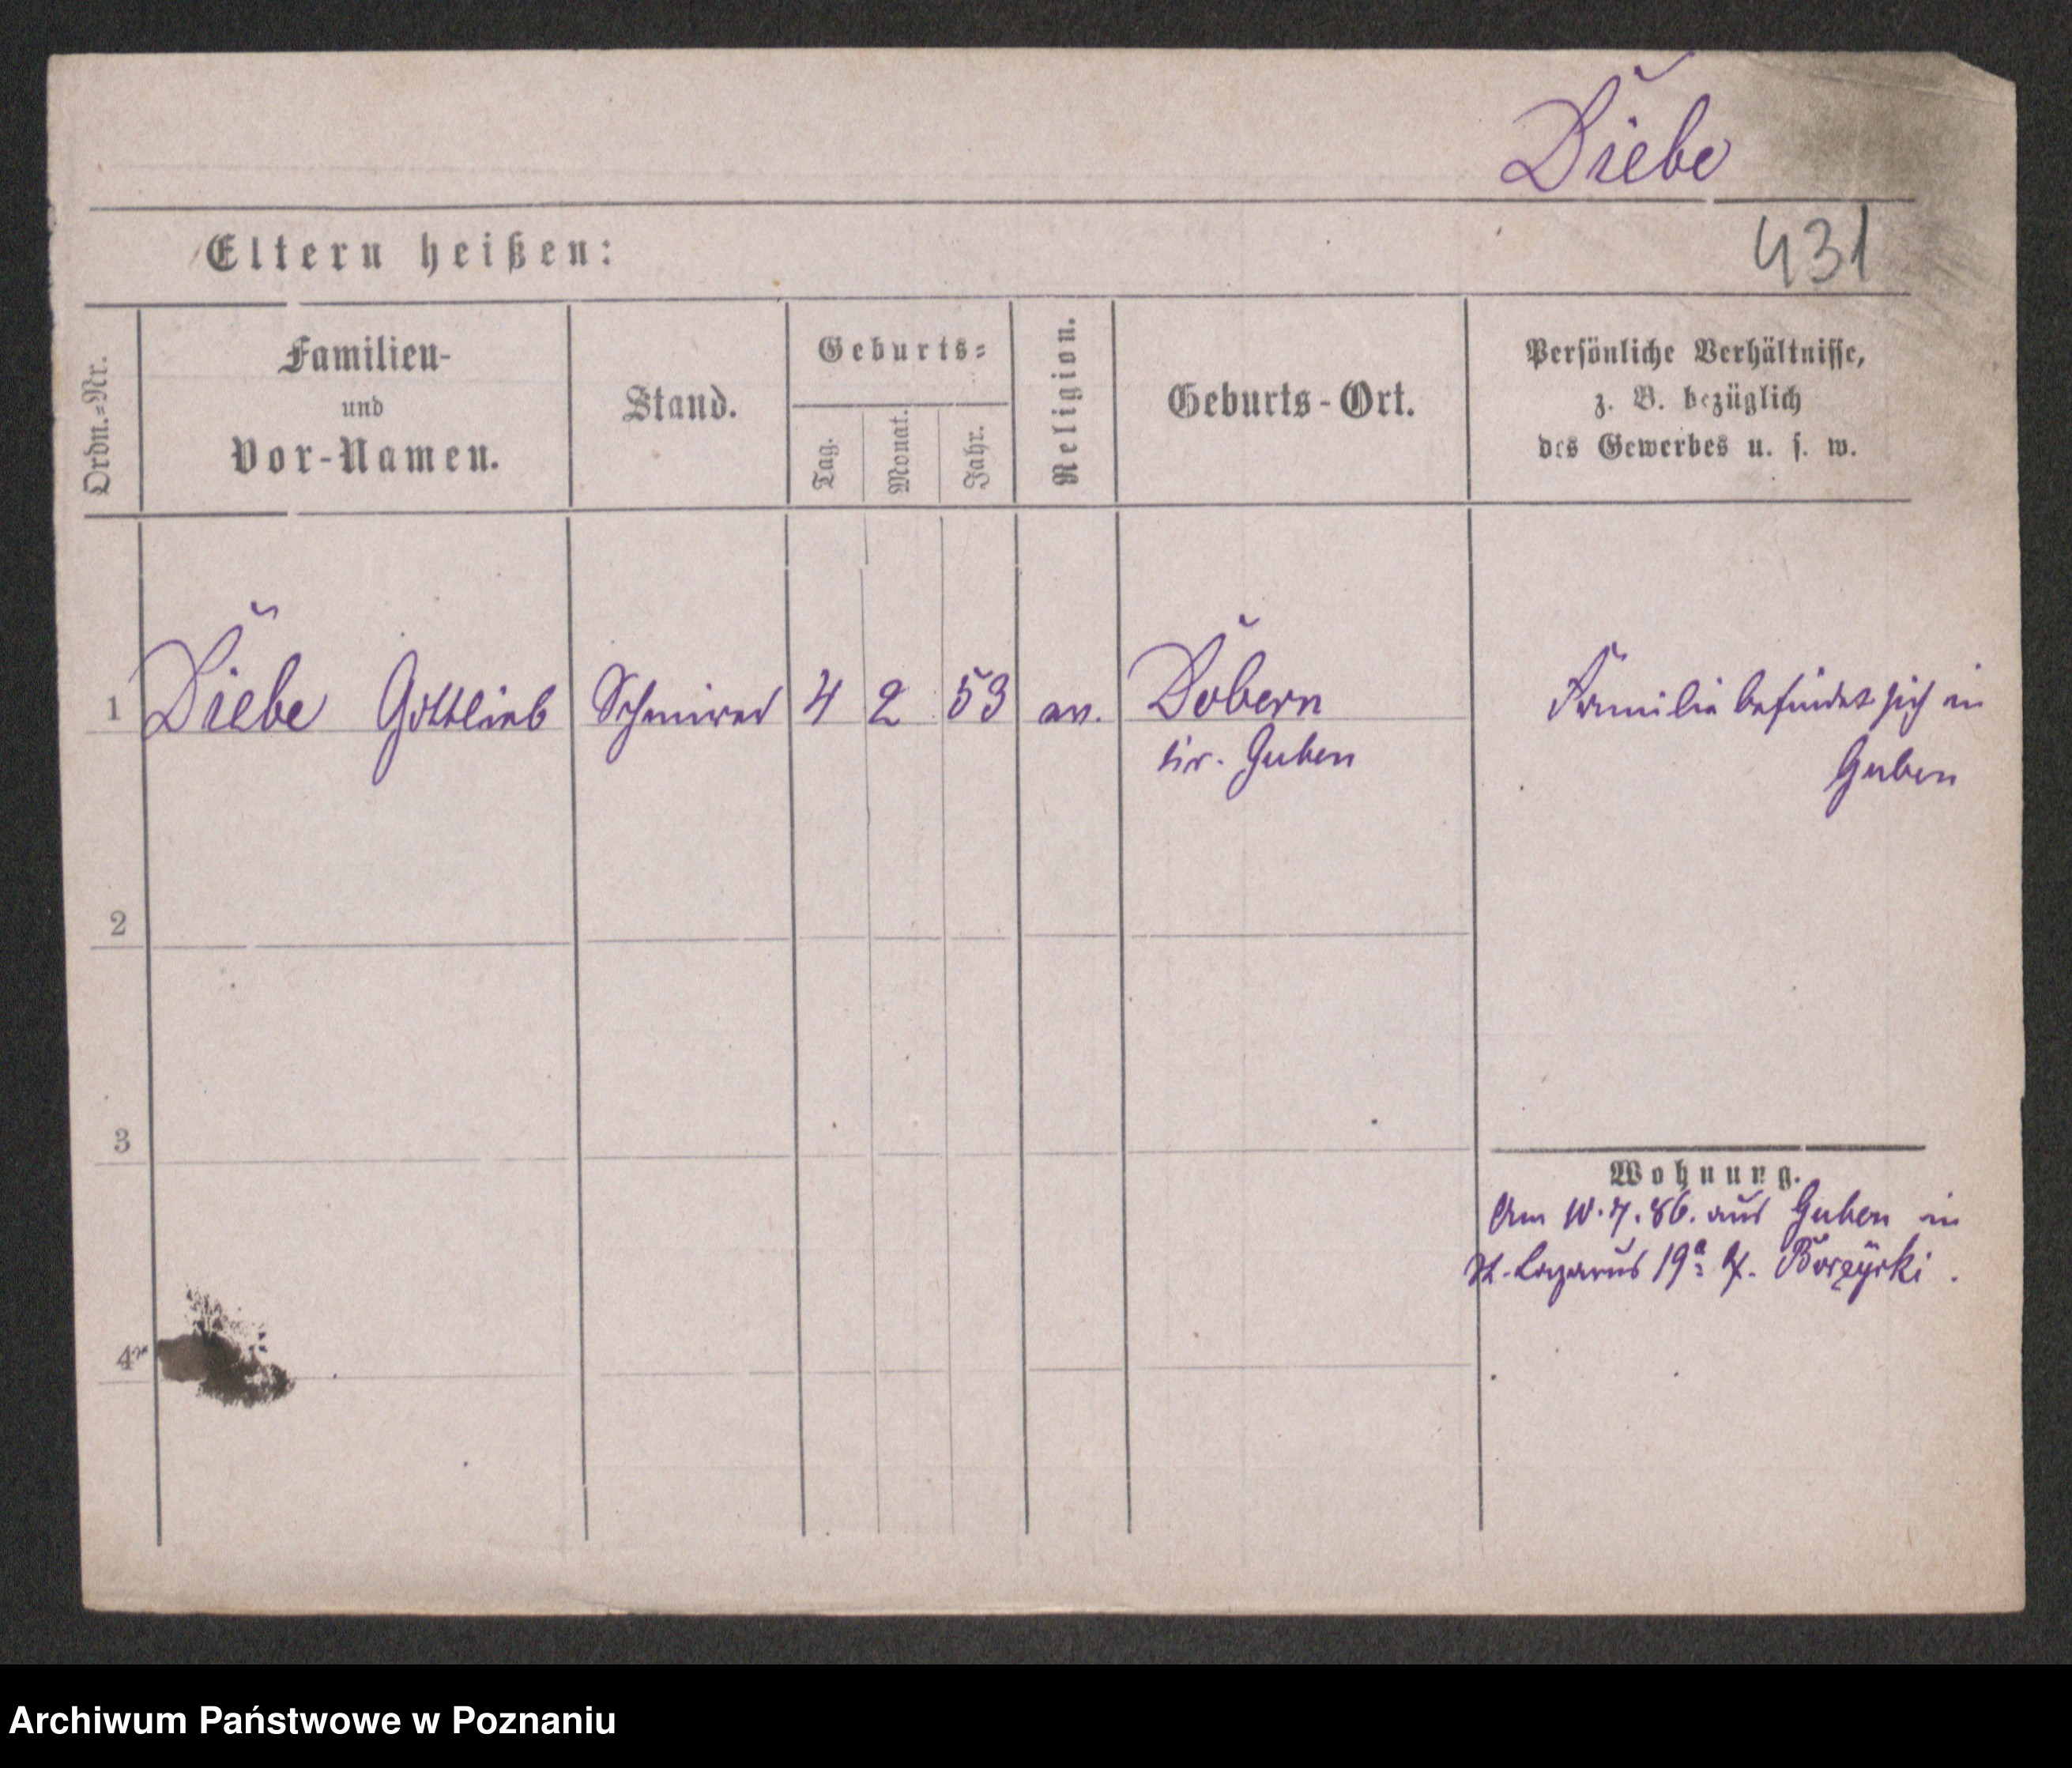 Diebe
431
Eltern heißen:
Ordn.-Nr.
Familien-
und
Vor-Namen.
Stand.
Geburts-
Tag.
Monat.
Jahr.
Religion.
Geburts-Ort.
Persönliche Verhältnisse,
z. B. bezüglich
des Gewerbes u. s. w.
1 Diebe Gottlieb 4 2 53 ev. Döbern Familie befindet sich in
Kr. Guben Guben
2
3
Wohnung.
Am 10.7.86. aus Guben in
St. Lazarus 19a
4
Archiwum Państwowe w Poznaniu